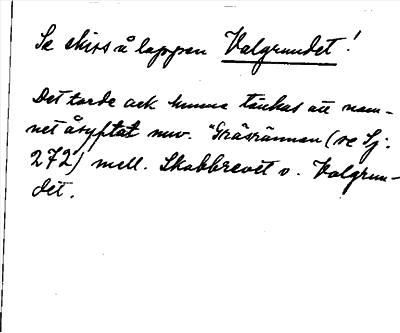 Se skiss å lappen Valgrundet!
Det torde ock kunna tänkas att nam-
net åsyftat nuv. "Gräsrännan (se Sj.
272) mell. Skabbrevet o. Valgrun-
det.